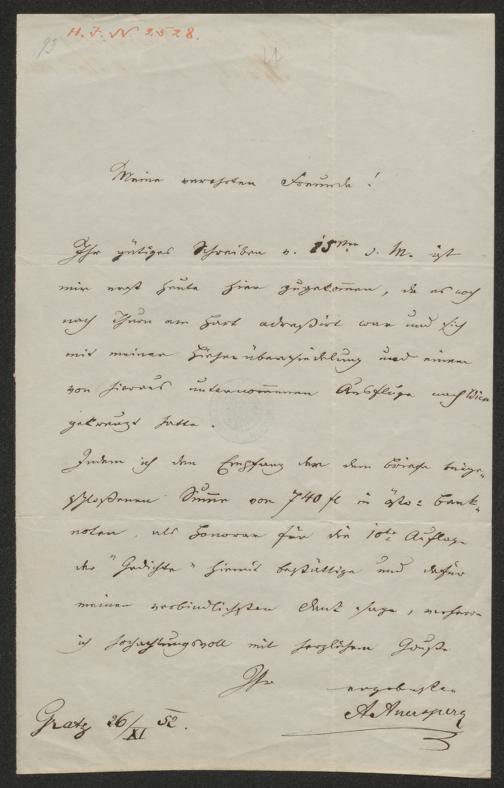 93
H. I. N 2528.
Meine verehrten Freunde!
Ihr gütiges Schreiben v. 15ten d. M. ist
mir erst heute hier zugekommen, da es noch
nach Thurn am Hart adressirt war und sich
mit meiner hieher Übersiedelung und einem
von hieraus unternommenen Ausfluge nach Wien
gekreuzt hatte.
Indem ich den Empfang der dem Briefe beige-
schloßenen Summe von 740 fl in östr: Bank-
noten, als Honorar für die 10te Auflage
der "Gedichte" hiemit bestättige und dafür
meinen verbindlichsten Dank sage, verharre
ich hochachtungsvoll mit herzlichem Gruße
Ihr
ergebenster
AAuersperg
Gratz 26/XI 52.